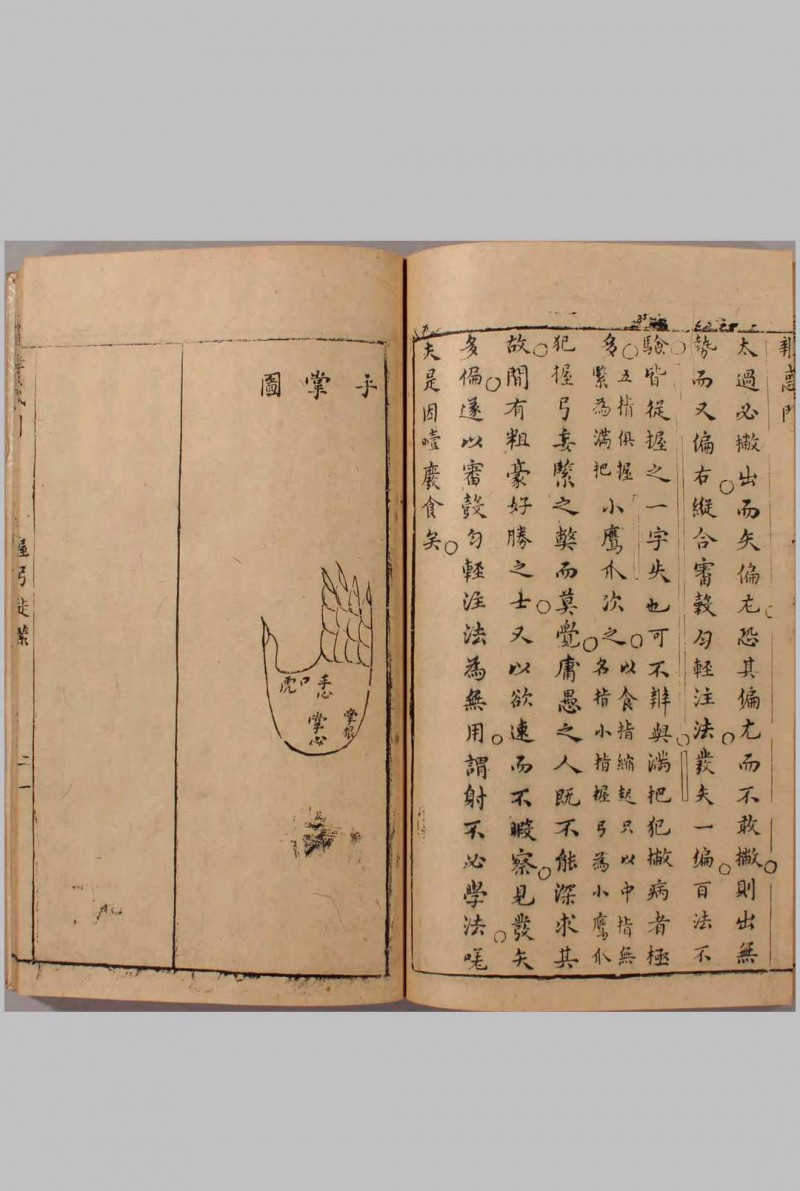 太過必撇出而矢偏左恐其偏左而不敢撇則出無
勢而又偏右縱合審彀勻輕注法發矢一偏百法不
驗皆從握之一字失也可不辨與滿把犯撇病者極
多五指俱握緊為滿把小鷹爪次之以食指縮起只以中指無名指小指握弓為小鷹爪
犯握弓妄緊之弊而莫覺庸愚之人既不能深求其
故間有粗豪好勝之士又以欲速而不暇察見發矢
多偏遂以審彀勻輕注法為無用謂射不必學法嗟
夫是因噎廢食矣
手掌圖
虎口
手心
掌心
掌根
握弓